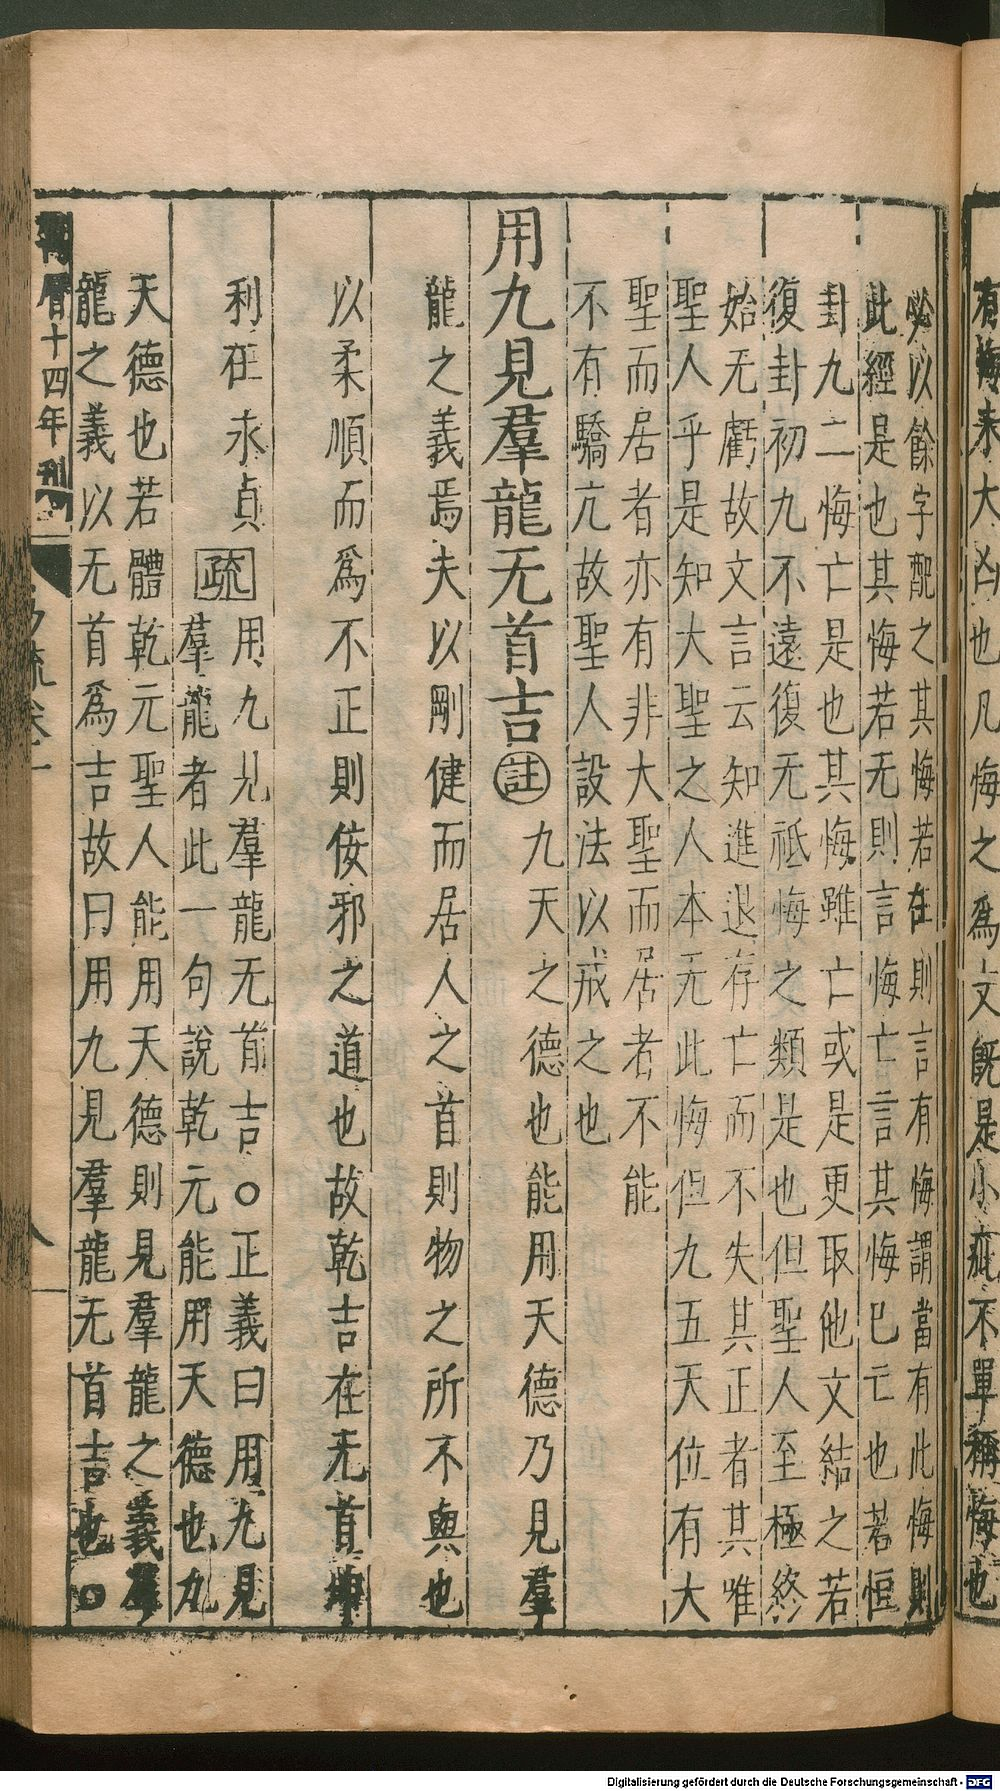 有悔未大凶也凡悔之爲文旣是小疵不單稱悔也
必以餘字配之其悔若在則言有悔謂當有此悔則
此經是也其悔若无則言悔亡言其悔已亡也若恒
卦九二悔亡是也其悔雖亡或是更取他文結之若
復卦初九不遠復无祗悔之類是也但聖人至極終
始无虧故文言云知進退存亡而不失其正者其唯
聖人乎是知大聖之人本无此悔但九五天位有大
聖而居者亦有非大聖而居者不能
不有驕亢故聖人設法以戒之也
用九見羣龍无首吉註九天之德也能用天德乃見羣
龍之義焉夫以剛健而居人之首則物之所不與也
以柔順而爲不正則佞邪之道也故乾吉在无首坤
利在永貞疏用九見羣龍无首吉○正義曰用九見
羣龍者此一句說乾元能用天德也九
天德也若體乾元聖人能用天德則見羣龍之義羣
龍之義以无首爲吉故曰用九見羣龍无首吉也○
萬曆十四年刊
易疏卷一
八
Digitalisierung gefördert durch die Deutsche Forschungsgemeinschaft - DFG